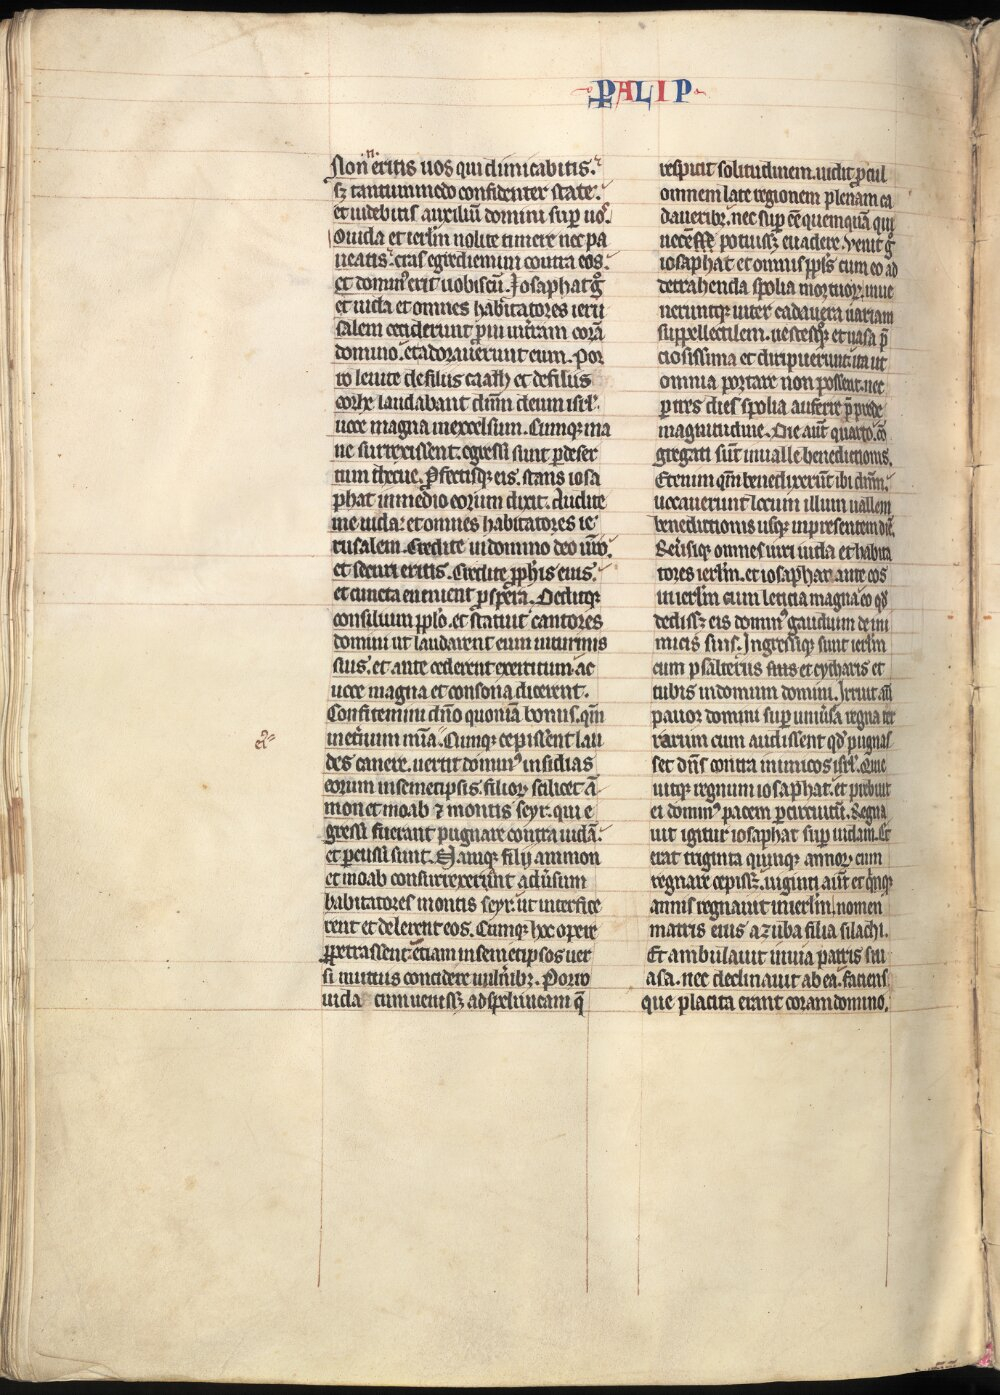 PALIP
.n.
Non eritis uos qui dimicabitis.
sꝫ tantummodo confidenter state.
et uidebitis auxiliū domini sup uoˢ.
O iuda et ierlm̄ nolite timere nec pa
ueatis. cras egrediemini contra eos.
et dominꝰ erit uobiscū. Iosaphat gͦ
et iuda et omnes habitatores ieru
salem ceciderunt p̄ni in t̄ram corā
domino. et adorauerunt eum. Por
ro leuite de filiis caath et de filiis
corhe laudabant dūm deum isrl̄.
uoce magna in excelsum. Cumqꝫ ma
ne surrexissent. egressi sunt ꝑ deser
tum thecue. ꝓfectisqꝫ eis. stans iosa
phat in medio eorum dixit. Audite
me iuda: et omnes habitatores ie
rusalem. Credite in domino deo ūro.
et securi eritis. Credite ꝓphis eius.
et cuncta euenient ꝓspera. Deditqꝫ
consilium pplo. et statuit cantores
domini ut laudarent eum in turmis
suis. et ante cederent exercitum. ac
uoce magna et consona dicerent.
Confitemini dn̄o quoniā bonus. qm̄
in et̄num mīa. Cumqꝫ cepissent lau
des canere. uertit dominꝰ insidias
eorum in semetipsis. filioꝝ scilicet ā
mon et moab ⁊ montis seyr. qui e
gressi fuerant pugnare contra iudā.
et ꝑcussi sunt. Namqꝫ filij ammon
et moab consurrexerunt adūsum
habitatores montis seyr. ut interfice
rent et delerent eos. Cumqꝫ hoc opere
ꝑpetrassent: etiam in semetipsos uer
si mutuis concidere uuln̄ibꝫ. Porro
iuda cum uenissꝫ ad speluncam q̄
respicit solitudinem. uidit ꝓcul
omnem late regionem plenam ca
daueribꝫ. nec sup esse quemquā qui
necem potuissꝫ euadere. Venit gͦ
iosaphat et omnis ppls cum eo ad
detrahenda spolia mortuoꝝ. inue
neruntqꝫ inter cadauera uariam
suppellectilem. uestesqꝫ et uasa p̄
ciosissima et diripuerunt. ita ut
omnia portare non possent. nec
ꝑ tres dies spolia auferre p̄ p̄de
magnitudine. Die aūt quarto. cō
gregati sūt in ualle benedictionis.
Etenim qm̄ benedixerūt ibi dn̄m.
uocauerunt locum illum uallem
benedictionis usqꝫ in presentem diē.
Reūsusqꝫ omnes uiri iuda et habita
tores ierlm̄. et iosaphat ante eos
in ierlm̄ cum leticia magna eo qd̄
dedissꝫ eis dominꝰ gaudium de ini
micis suis. Ingressiqꝫ sunt ierlm̄
cum psalteriis suis et cytharis et
tubis in domum domini. Irruit aūt
pauor domini sup uniūsa regna ter
rarum cum audissent qd̄ pugnas
set dn̄s contra inimicos isrl̄. Quie
uitqꝫ regnum iosaphat. et prebuit
ei dominꝰ pacem ꝑ circuitū. Regna
uit igitur iosaphat sup iudam. Et
erat triginta quinqꝫ annoꝝ cum
regnare cepissꝫ. uiginti aūt et qinqꝫ
annis regnauit in ierlm̄. nomen
matris eius azuba filia silachi.
Et ambulauit in uia patris sui
asa. nec declinauit ab ea. faciens
que placita erant coram domino.